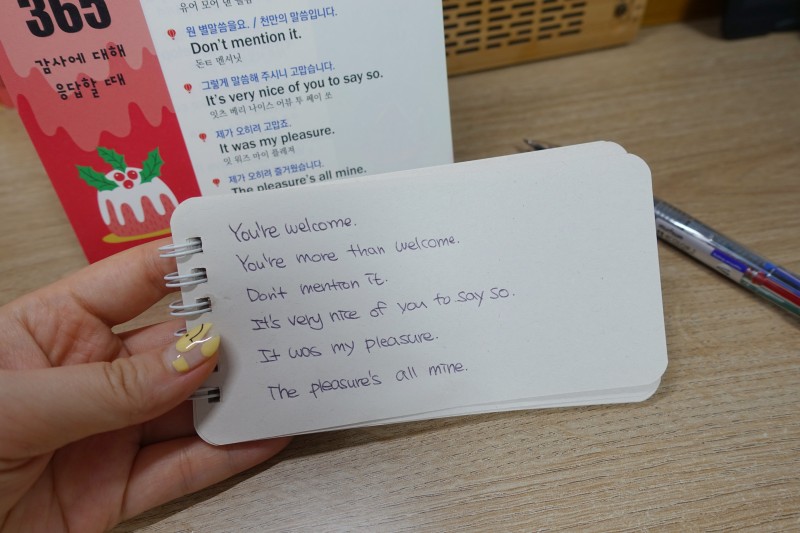 365
감사에 대해
응답할 때
원 별말씀을요. / 천만의 말씀입니다.
Don't mention it.
돈트 멘셔닛
그렇게 말씀해 주시니 고맙습니다.
It's very nice of you to say so.
잇츠 베리 나이스 어뷰 투 쎄이 쏘
제가 오히려 고맙죠.
It was my pleasure.
잇 워즈 마이 플레져
제가 오히려 즐거웠습니다.
The pleasure's all mine.
You're welcome.
You're more than welcome.
Don't mention it.
It's very nice of you to say so.
It was my pleasure.
The pleasure's all mine.